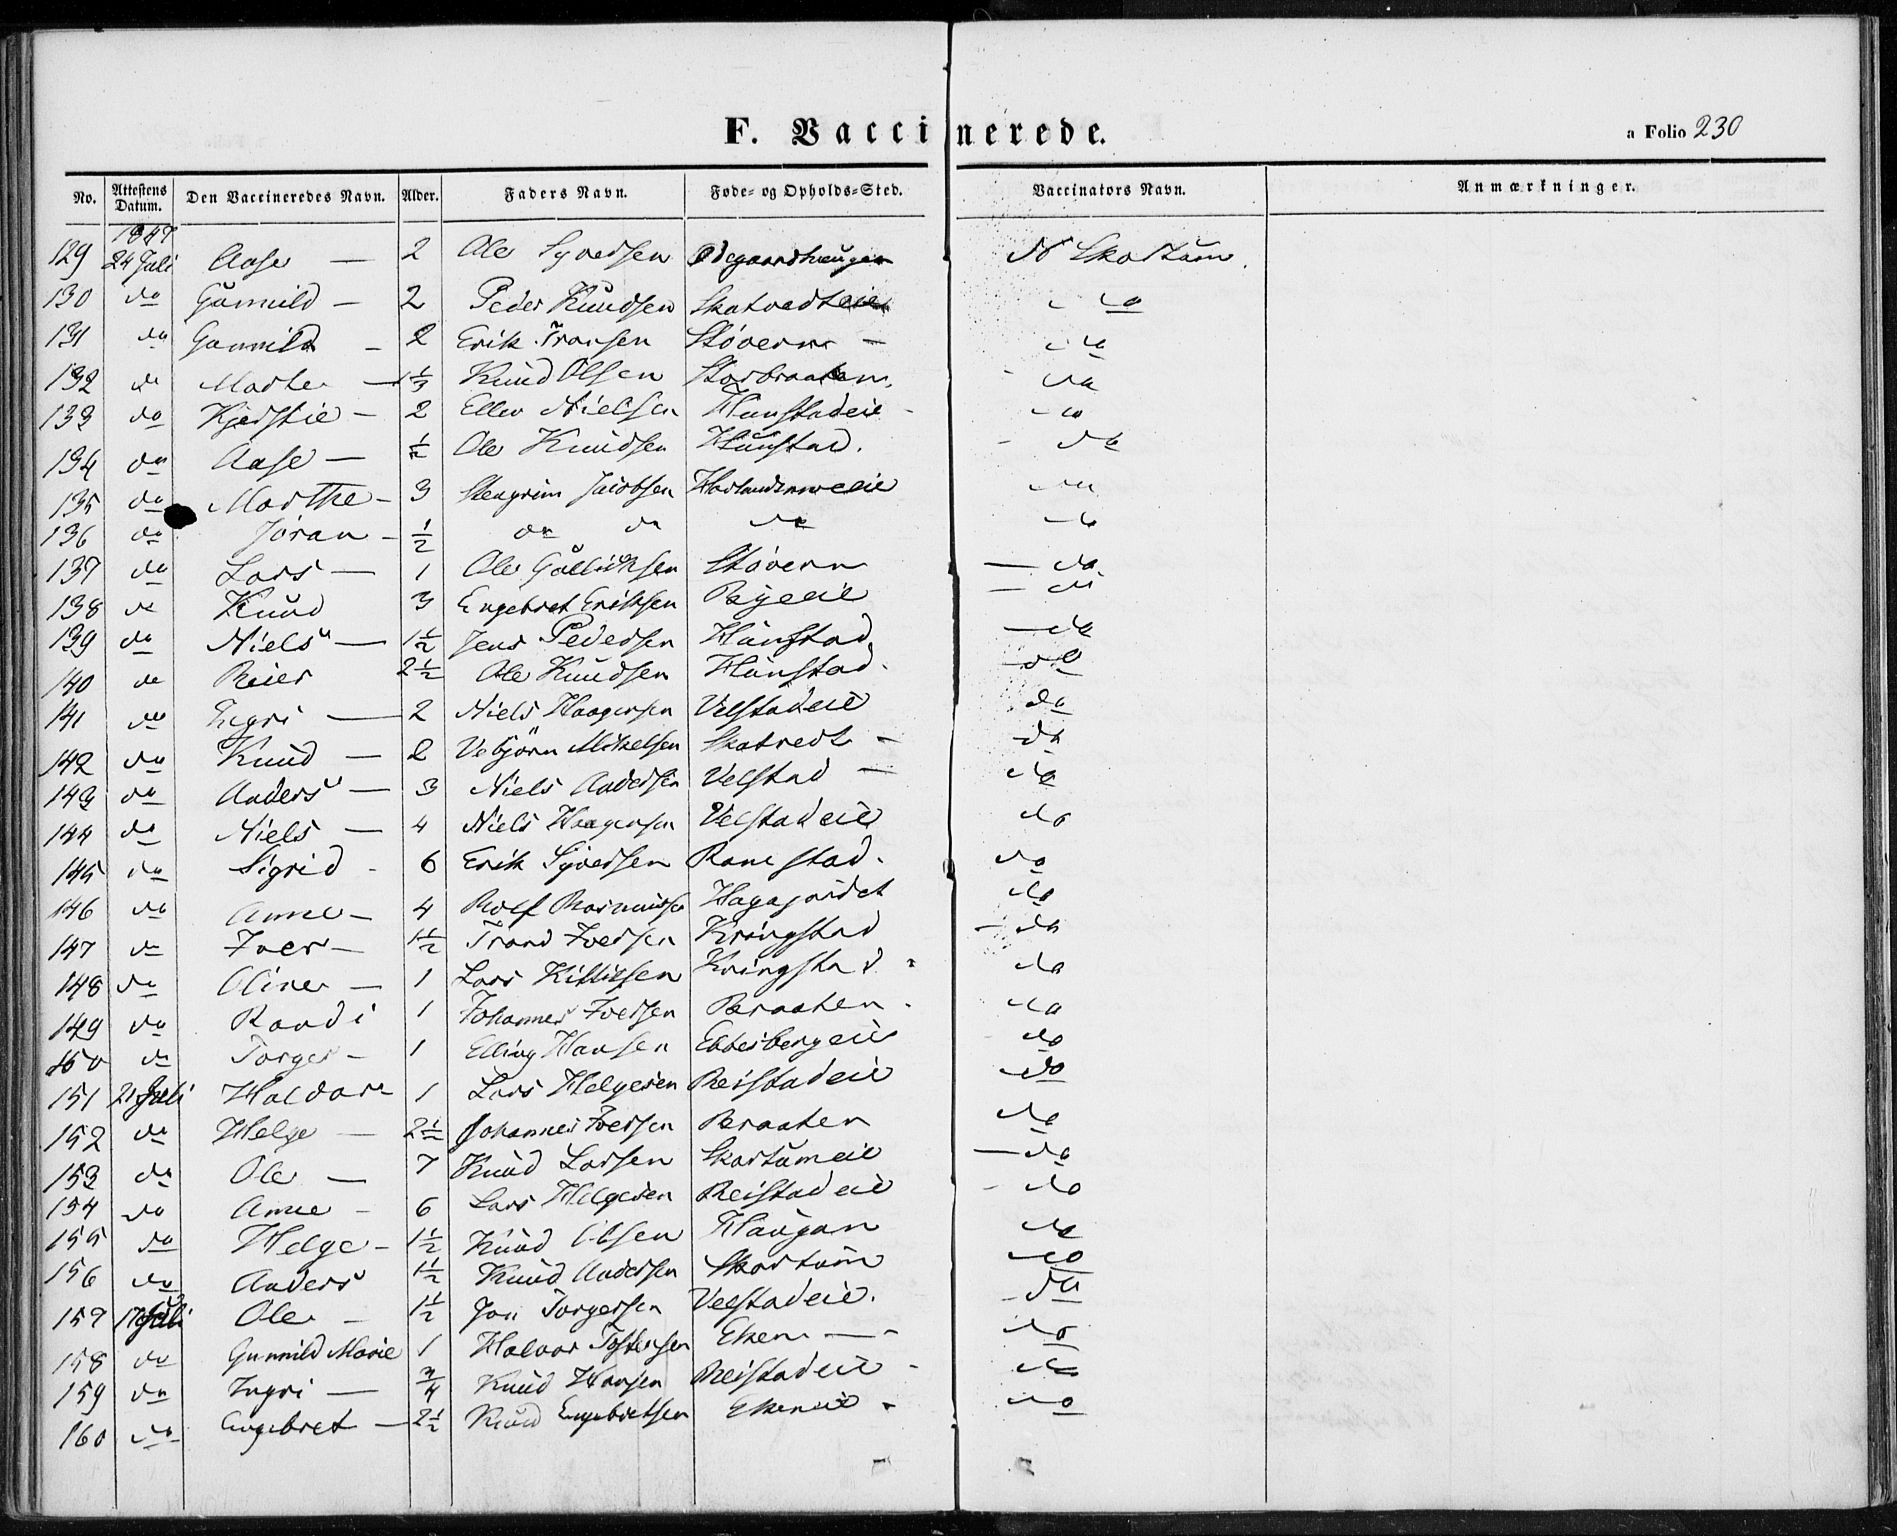 F. Vaccinerede.
a Folio 230
No. Attestens Datum. Den Vaccineredes Navn. Alder. Faders Navn. Føde- og Opholds-Sted. Vaccinators Navn. Anmærkninger.
1847
129 24 Juli Aase — 2 Ole Syversen Ødegaardhaugen N Skartum.
130 do Gunnild — 2 Peder Knudsen Skatvedteie do
131 do Gunnild — 2 Erik Transen Støvern — do
132 do Marte — 1 1/3 Knud Olsen Storbraaten. do
133 do Kjerstie — 2 Ellev Nielsen Hunstadeie do
134 do Aase — 1/2 Ole Knudsen Hunstad. do
135 do Marthe — 3 Stengrim Jacobsen do
136 do Jøran — 1/2 do do do do
137 do Lars — 1 Ole Gulliksen Støvern — do
138 do Knud 3 Engebret Eriksen Byeeie — do
139 do Niels — 1 1/2 Jens Pedersen Hunstad — do
140 do Reier 2 1/2 Ole Knudsen Hunstad. do
141 do Ingri — 2 Niels Haagensen Velstadeie do
142 do Knud — 2 Vebjørn Mikkelsen Skatvedt — do
143 do Anders — 3 Niels Andersen Velstad — do
144 do Niels — 4 Niels Haagensen Velstadeie do
145 do Sigrid - 6 Erik Syversen Ramstad. do
146 do Anne — 4 Rolf Rasmussen do
147 do Iver — 1 1/2 Trond Iversen Kringstad — do
148 do Oline — 1 Lars Kittilsen Kringstad do
149 do Randi 1 Johannes Iversen Braaten. do
150 do Torger — 1 Elling Hansen Ebbesbergeie do
151 21 Juli Haldor 1 Lars Helgesen Reistadeie do
152 do Helge — 2 1/2 Johannes Iversen Braaten do
153 do Ole — 7 Knud Larsen Skartumeie — do
154 do Anne - 6 Lars Helgesen Reistadeie - do
155 do Helge - 1 1/2 Knud Olsen Haugan do
156 do Anders 1 1/2 Knud Andersen Skartum do
157 17 Juli Ole — 1 1/2 Jon Torgersen Velstadeie. do
158 do Gunnild Marie 1 Halvor Tostensen Eken — do
159 do Ingri — 3/4 Knud Hansen Reistadeie - do
160 do Engebret — 2 1/2 Knud Engebretsen Ekeneie do